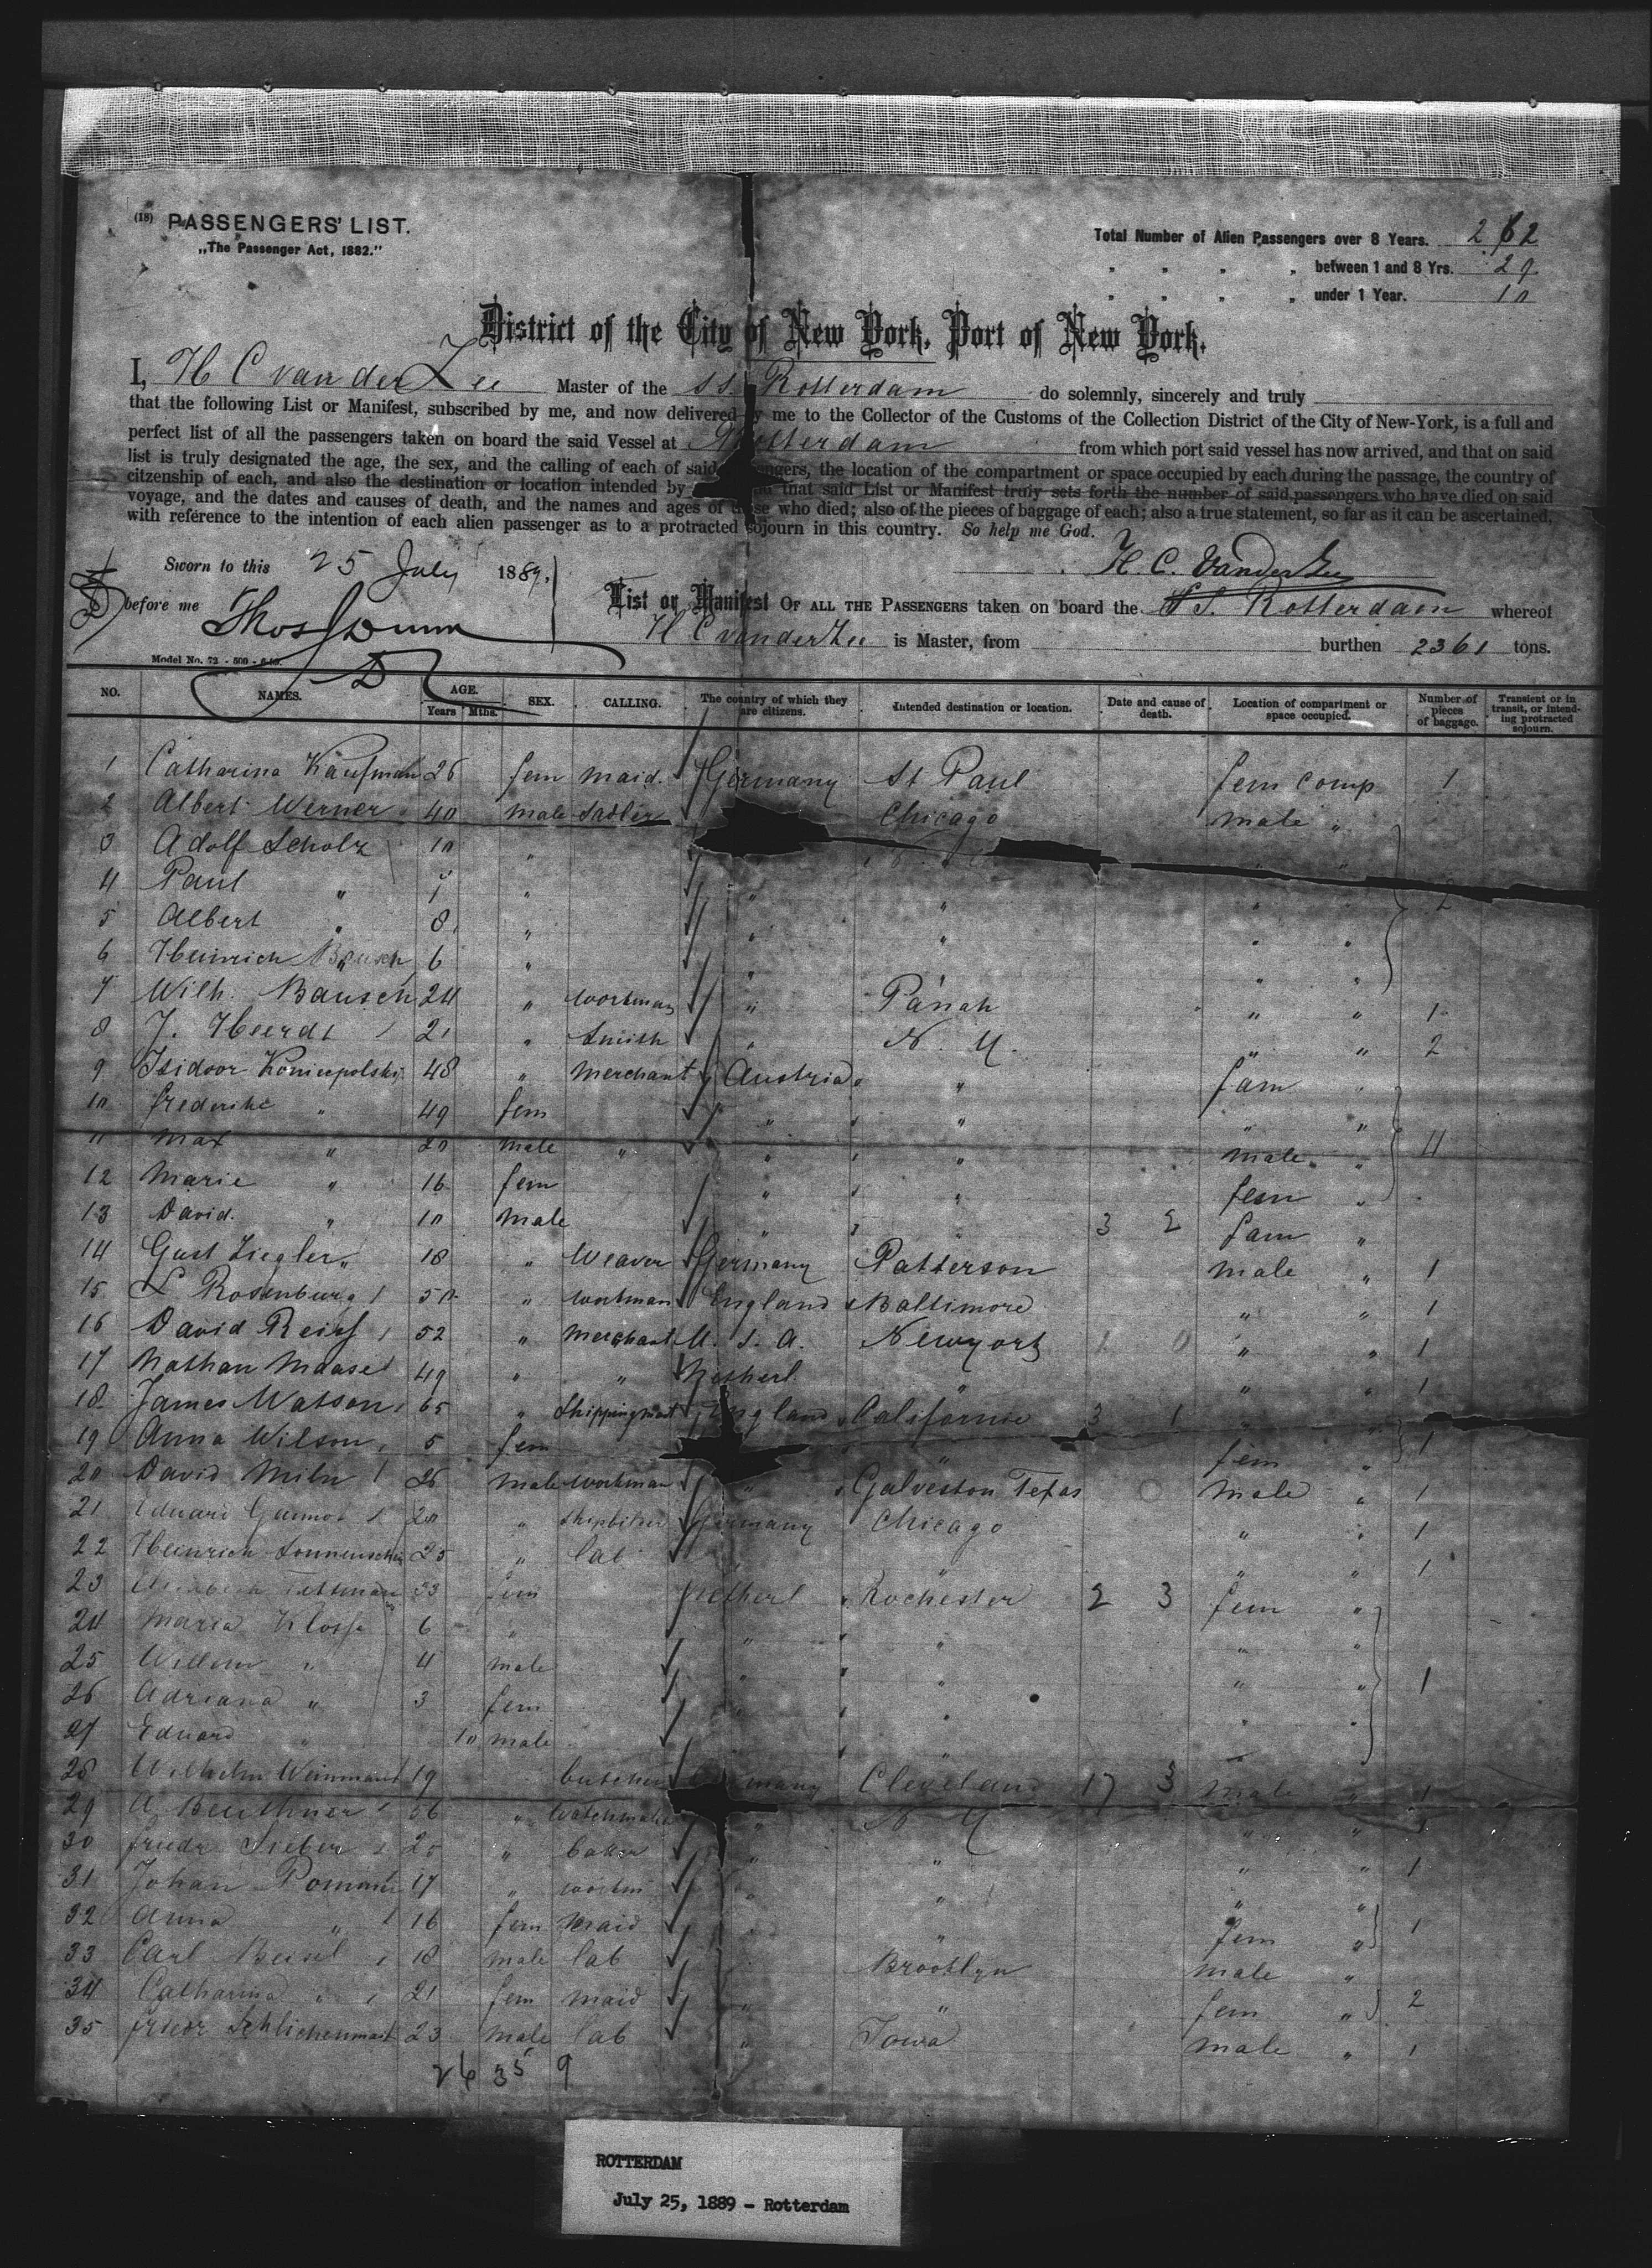 (18) PASSENGERS' LIST.
„The Passenger Act, 1882."
Total Number of Alien Passengers over 8 Years. 262
" " " " between 1 and 8 Yrs. 29
" " " " under 1 Year. 10
District of the City of New York, Port of New York.
I, H C van der Zee Master of the s s. Rotterdam do solemnly, sincerely and truly
that the following List or Manifest, subscribed by me, and now delivered by me to the Collector of the Customs of the Collection District of the City of New-York, is a full and
perfect list of all the passengers taken on board the said Vessel at Rotterdam from which port said vessel has now arrived, and that on said
list is truly designated the age, the sex, and the calling of each of said passengers, the location of the compartment or space occupied by each during the passage, the country of
citzenship of each, and also the destination or location intended by that said List or Manifest truly sets forth the number of said passengers who have died on said
voyage, and the dates and causes of death, and the names and ages of those who died; also of the pieces of baggage of each; also a true statement, so far as it can be ascertained,
with reference to the intention of each alien passenger as to a protracted sojourn in this country. So help me God.
Sworn to this 25 July 1889.
H. C. VanderZee
before me Thos Dunn
List or Manifest OF ALL THE PASSENGERS taken on board the S S. Rotterdam whereof
H C van der Zee is Master, from burthen 2361 tons.
Model No. 72 - 500
NO. NAMES. AGE. Years Mths. SEX. CALLING. The country of which they are citizens. Intended destination or location. Date and cause of death. Location of compartment or space occupied. Number of pieces of baggage. Transient or in transit, or intending protracted sojourn.
1 Catharina Kaufman 26 fem maid. Germany St Paul fem comp 1
2 Albert Werner 40 male Sadler Chicago male "
3 Adolf Scholz 10 "
4 Paul " " " " " " 2
5 Albert " 8 " " " " "
6 Heinrich 6 " " " "
7 Wilh. Bausch 24 " workman " Panah " " 1
8 J. Heerdt 21 " Smith " N. Y. " " 2
9 Isidoor Koniecpolski 48 " merchant Austria " fam "
10 frederike " 49 fem " " " "
11 Max " 20 male " " " male " 4
12 Marie " 16 fem " " fem "
13 David. " 10 male " " 3 2 fam "
14 Gust Ziegler 18 " Weaver Germany Patterson male " 1
15 L Rosenburg 50 " workman England Baltimore " " 1
16 David Reiss 52 " Merchant U. S. A. Newyork 1 0 " " 1
17 Nathan Maase 49 " " Netherl " " " 1
18 James Watson 65 " England Californie 3 1 " "
19 Anna Wilson 5 fem " fem " 1
20 David Miln 26 male workman " Galveston Texas 0 male " 1
21 Eduard 20 " Germany Chicago " " 1
22 Heinrich Sonnenschein 25 " lab " " " 1
23 33 fem Netherl Rochester 2 3 fem "
24 Maria Klosse 6 " " " " "
25 Willem " 4 male " " " " 1
26 Adriana " 3 fem " " " "
27 Eduard " 10 male "
28 Wilhelm Weinmann 19 butcher Germany Cleveland 17 3 male " 1
29 A. Beuthner 56 " Watchmaker " N Y " " 1
30 friedr Sieber 20 " baker " " " " 1
31 Johan 17 " " " " "
32 Anna " 16 fem Maid " fem " 1
33 Carl Beisel 18 male lab Brooklyn male "
34 Catharina " 21 fem maid " " fem " 2
35 friedr 23 male lab " Iowa male " 1
26 35 9
ROTTERDAM
July 25, 1889 - Rotterdam